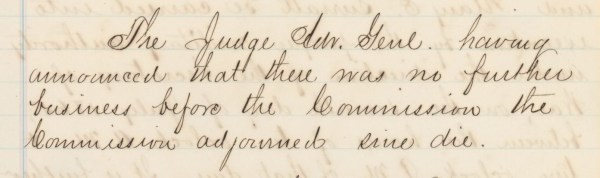 The Judge Adv. Genl. having
announced that there was no further
business before the Commission the
Commission adjourned sine die.